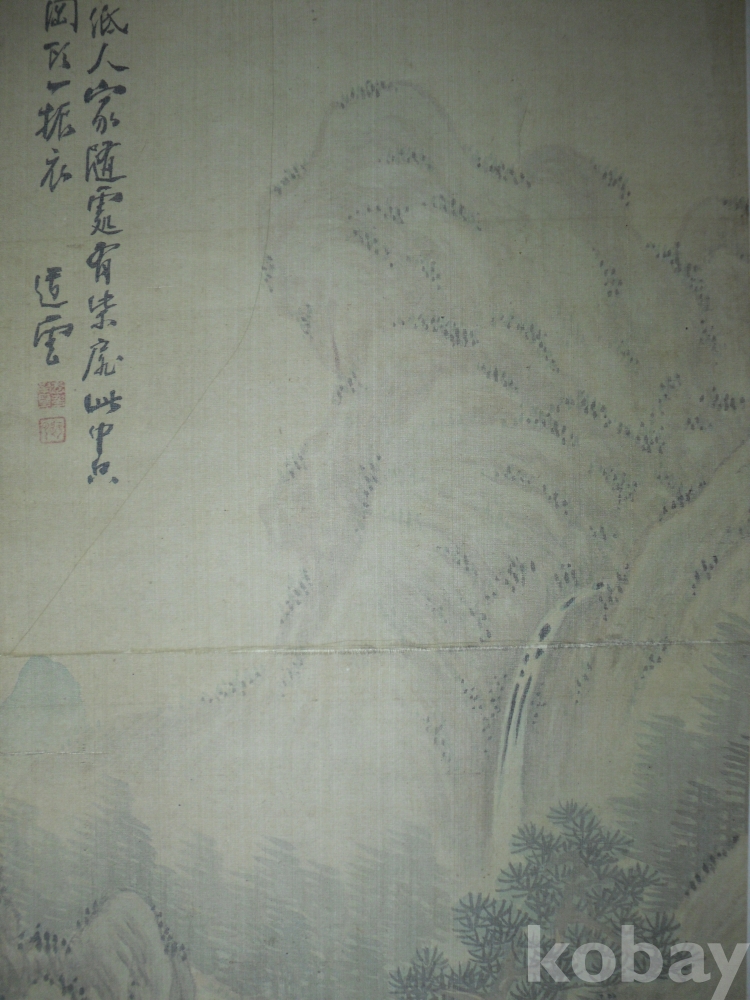 低人家随處有柴扉此中只
岡頭一振衣
道雲
kobay